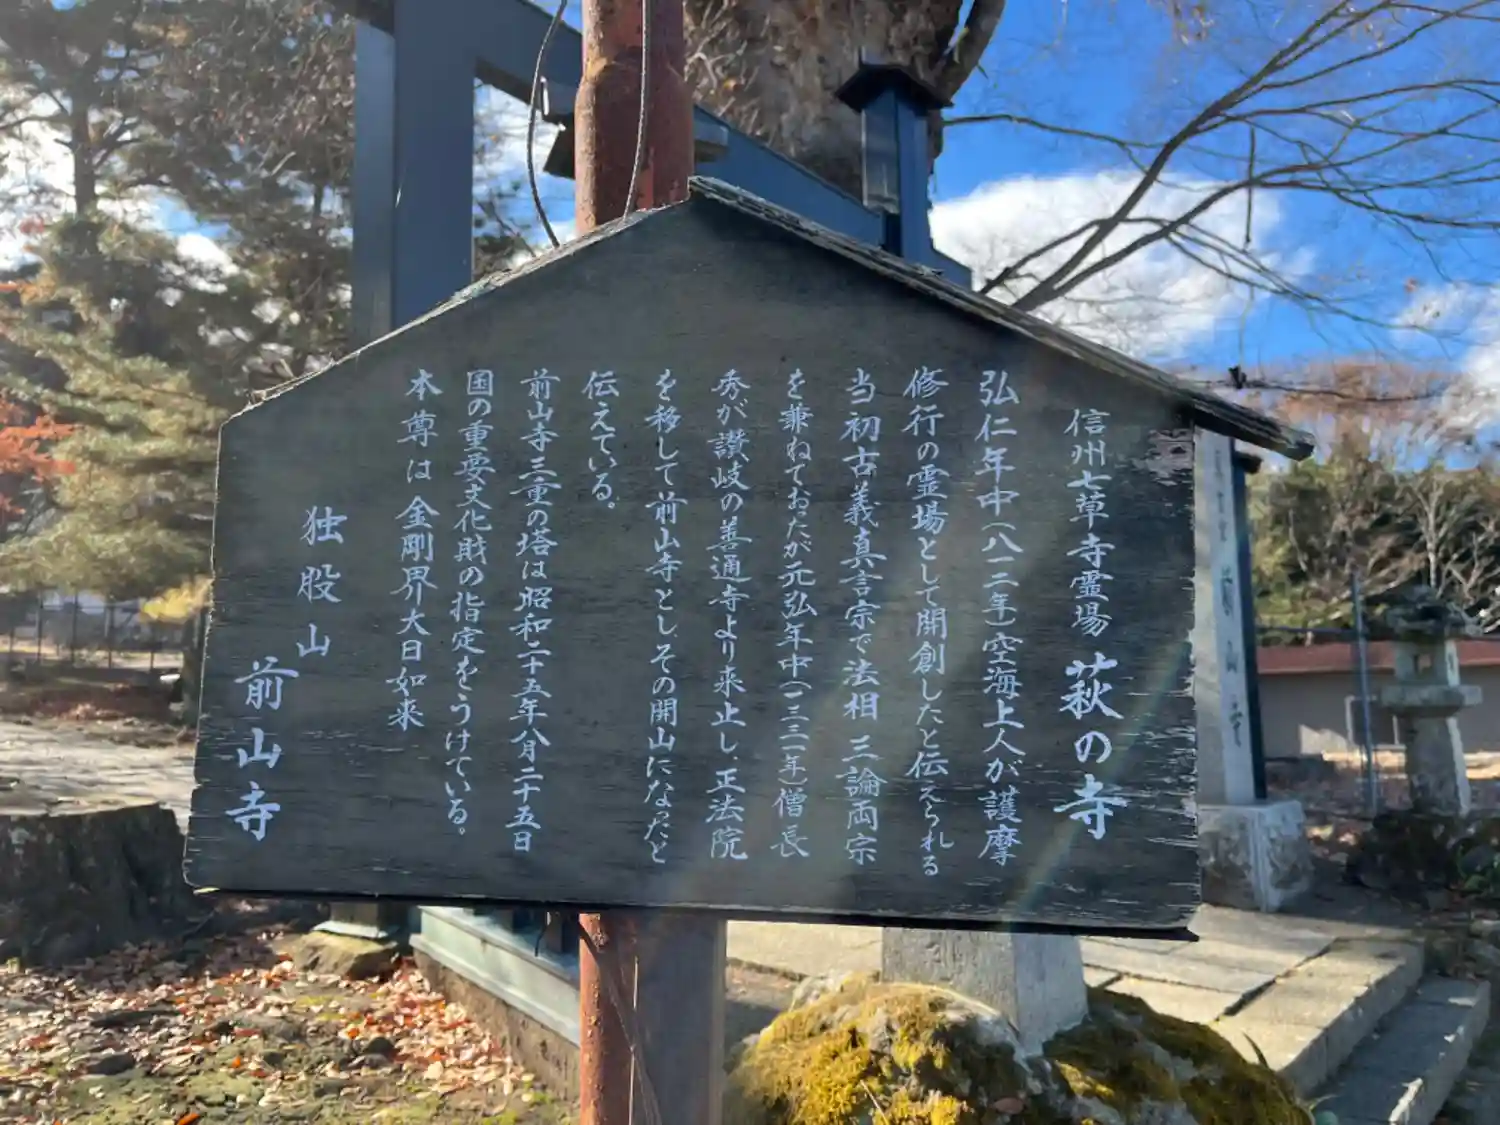 信州七草寺霊場 萩の寺
弘仁年中(八一二年)空海上人が護摩
修行の霊場として開創したと伝えられる
当初古義真言宗で法相三論両宗
を兼ねておたが元弘年中(一三三一年)僧長
秀が讃岐の善通寺より来止し正法院
を移して前山寺としその開山になったと
伝えている。
前山寺三重の塔は昭和二十五年八月二十五日
国の重要文化財の指定をうけている。
本尊は金剛界大日如来
独股山
前山寺